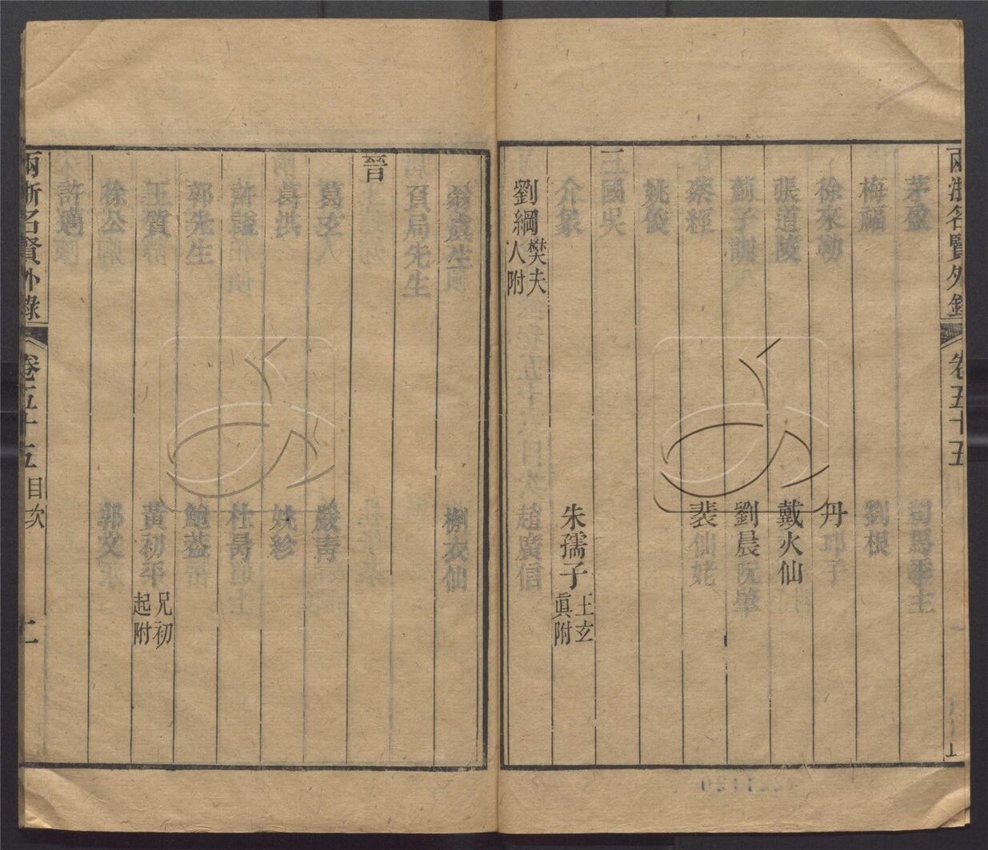 兩浙名賢外錄 卷五十五
茅盈 司馬季主
梅福 劉根
徐來勒
張道陵 戴火仙
薊子訓 劉晨阮肇
蔡經 裴仙姥
姚俊
三國吳
介象 朱孺子王玄真附
劉綱樊夫人附 趙廣信
晉
葛玄
葛洪 姚紗
許邁 杜昺
郭先生 鮑蓋
王質 黃初平兄初起附
徐公 郭文
許邁
兩浙名賢外錄 卷五十五目次